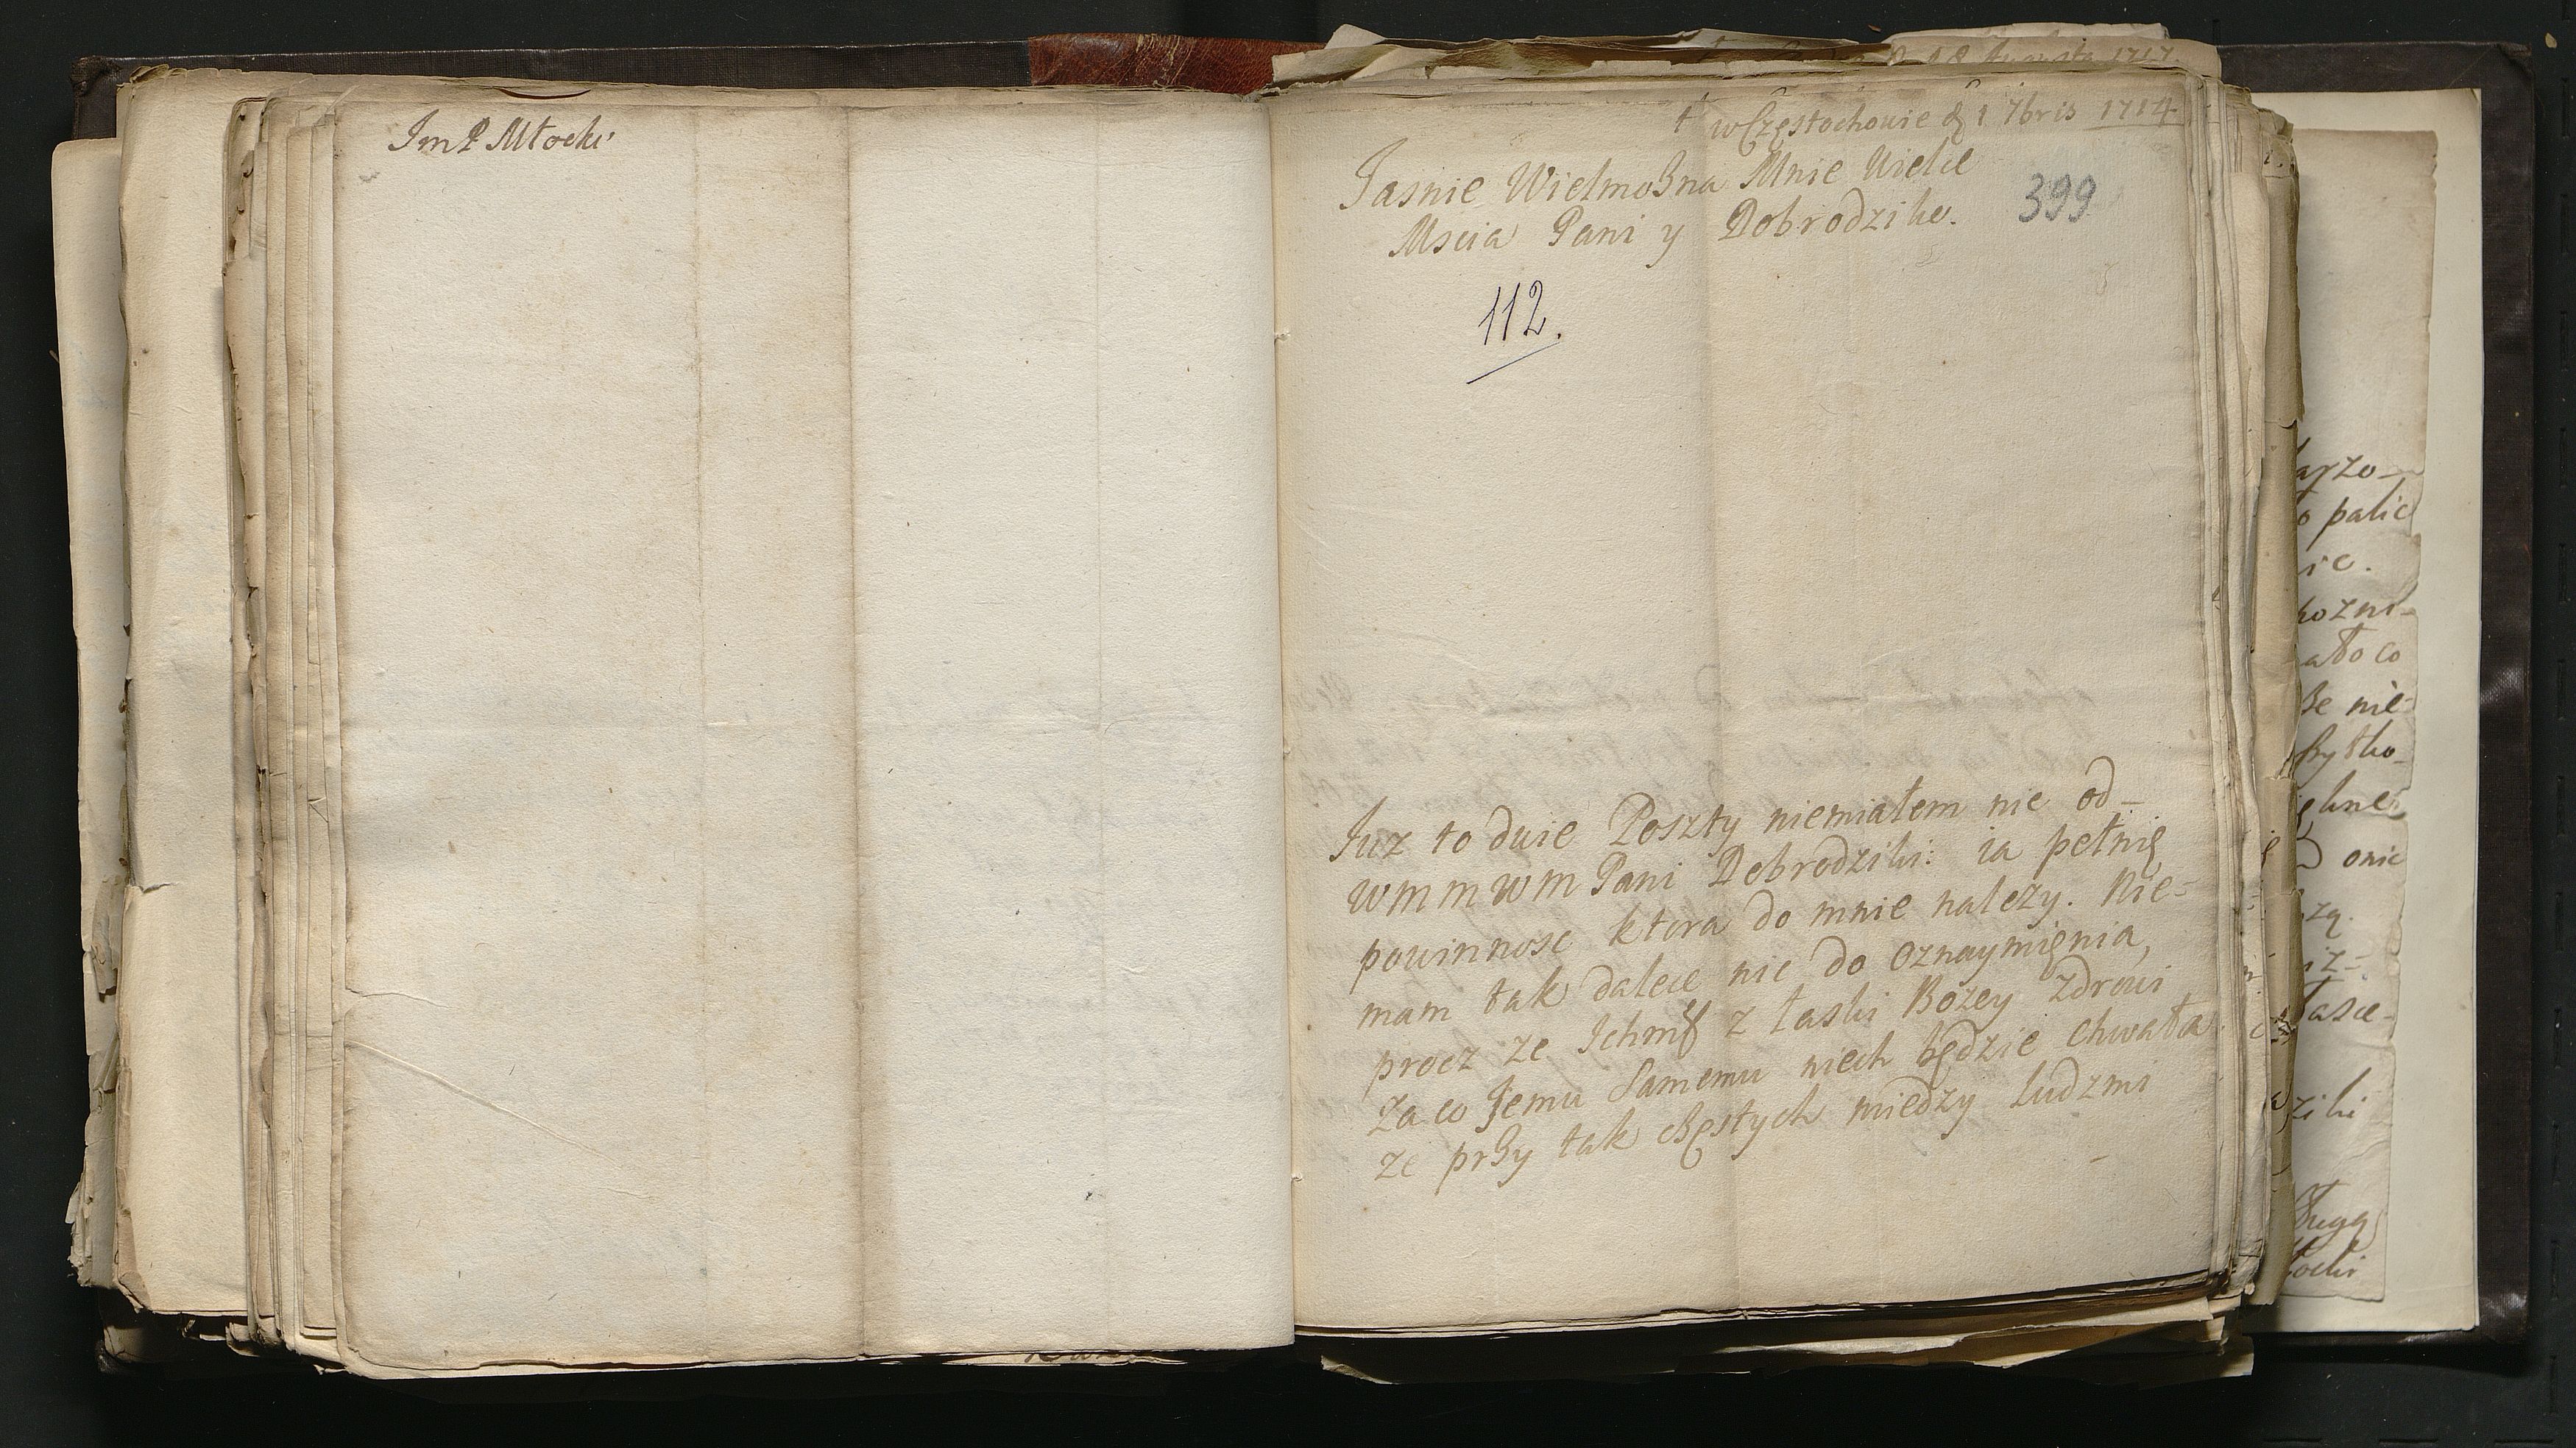 Jm P Młocki
† w Częstochowie d 1 7bris 1714
Jasnie Wielmożna Mnie Wielce
Mscia Pani y Dobrodziko.
399
112.
Juz to dwie Poszty niemiałem nic od-
WMMWM Pani Dobrodziki: ia pełnię
powinnosc ktora do mnie nalezy. Nie=
mam tak dalece nic do oznaymięnia,
procz ze Ichmę z łaski Bozey zdrowi
Za co Jemu Samemu niech będzie chwała
ze przy tak częstych miedzy ludzmi
Augusta 1717
arzo-
o palic
ic.
ato co
że nie-
onic
łasce-
ziki